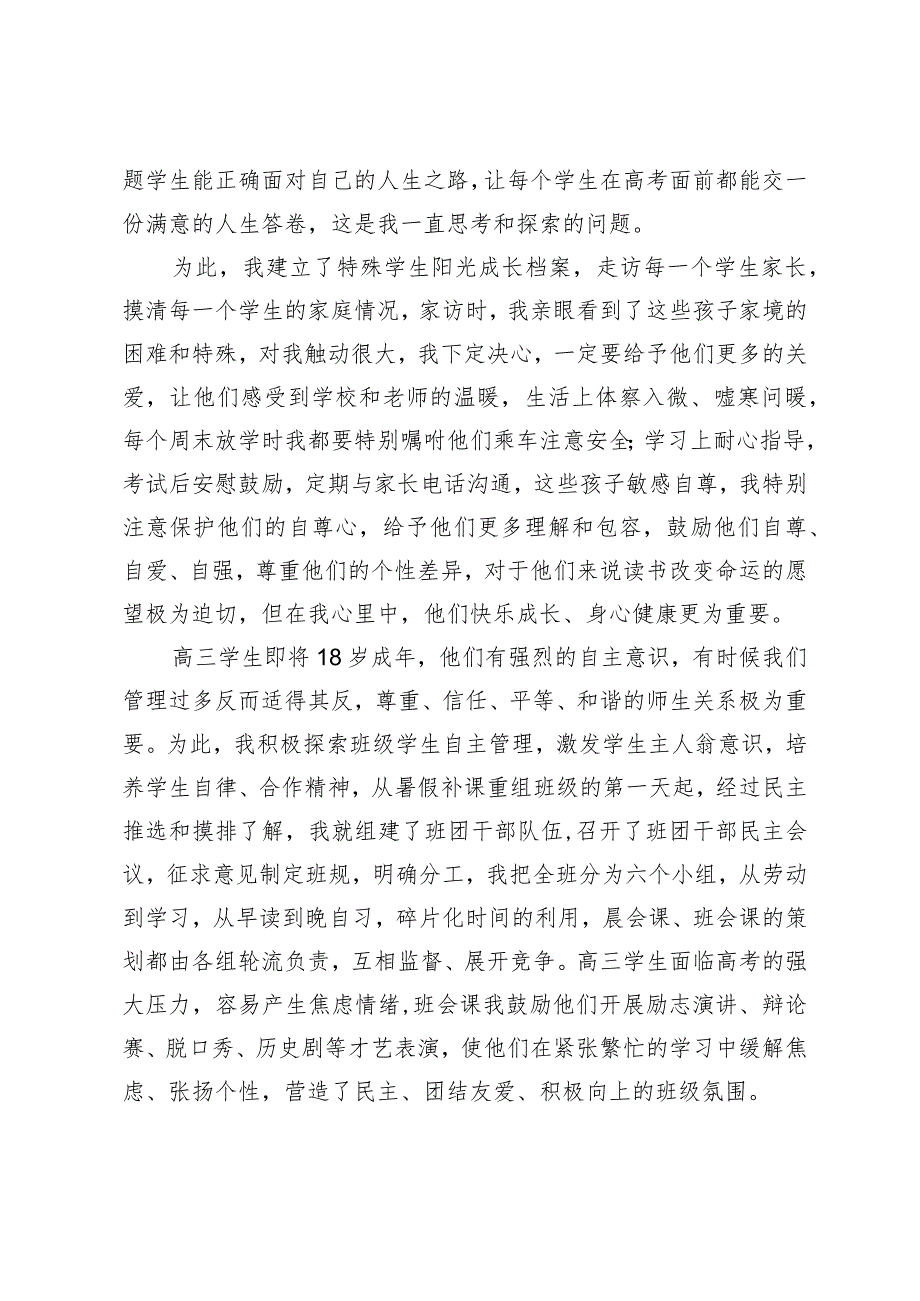 题学生能正确面对自己的人生之路，让每个学生在高考面前都能交一
份满意的人生答卷，这是我一直思考和探索的问题。
为此，我建立了特殊学生阳光成长档案，走访每一个学生家长，
摸清每一个学生的家庭情况，家访时，我亲眼看到了这些孩子家境的
困难和特殊，对我触动很大，我下定决心，一定要给予他们更多的关
爱，让他们感受到学校和老师的温暖，生活上体察入微、嘘寒问暖，
每个周末放学时我都要特别嘱咐他们乘车注意安全；学习上耐心指导，
考试后安慰鼓励，定期与家长电话沟通，这些孩子敏感自尊，我特别
注意保护他们的自尊心，给予他们更多理解和包容，鼓励他们自尊、
自爱、自强，尊重他们的个性差异，对于他们来说读书改变命运的愿
望极为迫切，但在我心里中，他们快乐成长、身心健康更为重要。
高三学生即将 18 岁成年，他们有强烈的自主意识，有时候我们
管理过多反而适得其反，尊重、信任、平等、和谐的师生关系极为重
要。为此，我积极探索班级学生自主管理，激发学生主人翁意识，培
养学生自律、合作精神，从暑假补课重组班级的第一天起，经过民主
推选和摸排了解，我就组建了班团干部队伍,召开了班团干部民主会
议，征求意见制定班规，明确分工，我把全班分为六个小组，从劳动
到学习，从早读到晚自习，碎片化时间的利用，晨会课、班会课的策
划都由各组轮流负责，互相监督、展开竞争。高三学生面临高考的强
大压力，容易产生焦虑情绪,班会课我鼓励他们开展励志演讲、辩论
赛、脱口秀、历史剧等才艺表演，使他们在紧张繁忙的学习中缓解焦
虑、张扬个性，营造了民主、团结友爱、积极向上的班级氛围。